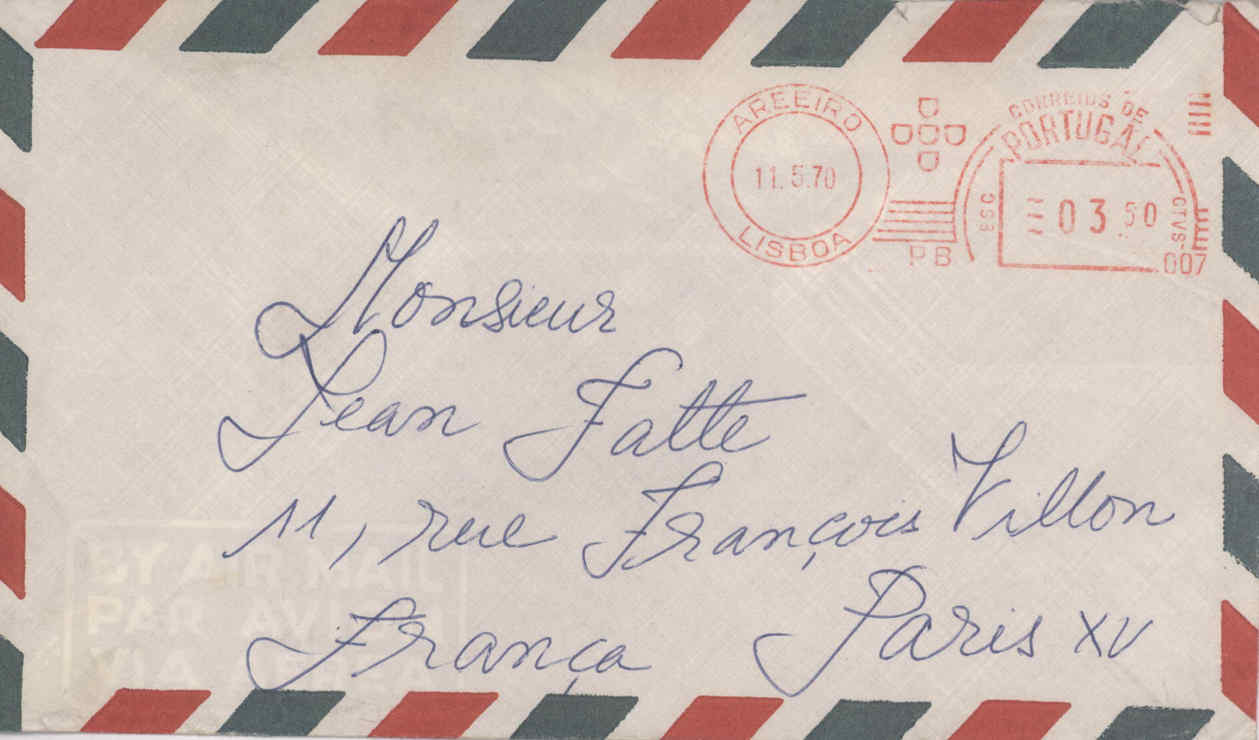 AREEIRO
11. 5.70
LISBOA
PB
CORREIOS DE
PORTUGAL
ESC
03 50
CTVS
007
Monsieur
Jean Fatte
11, rue François Villon
França Paris XV
BY AIR MAIL
PAR AVION
VIA AEREA